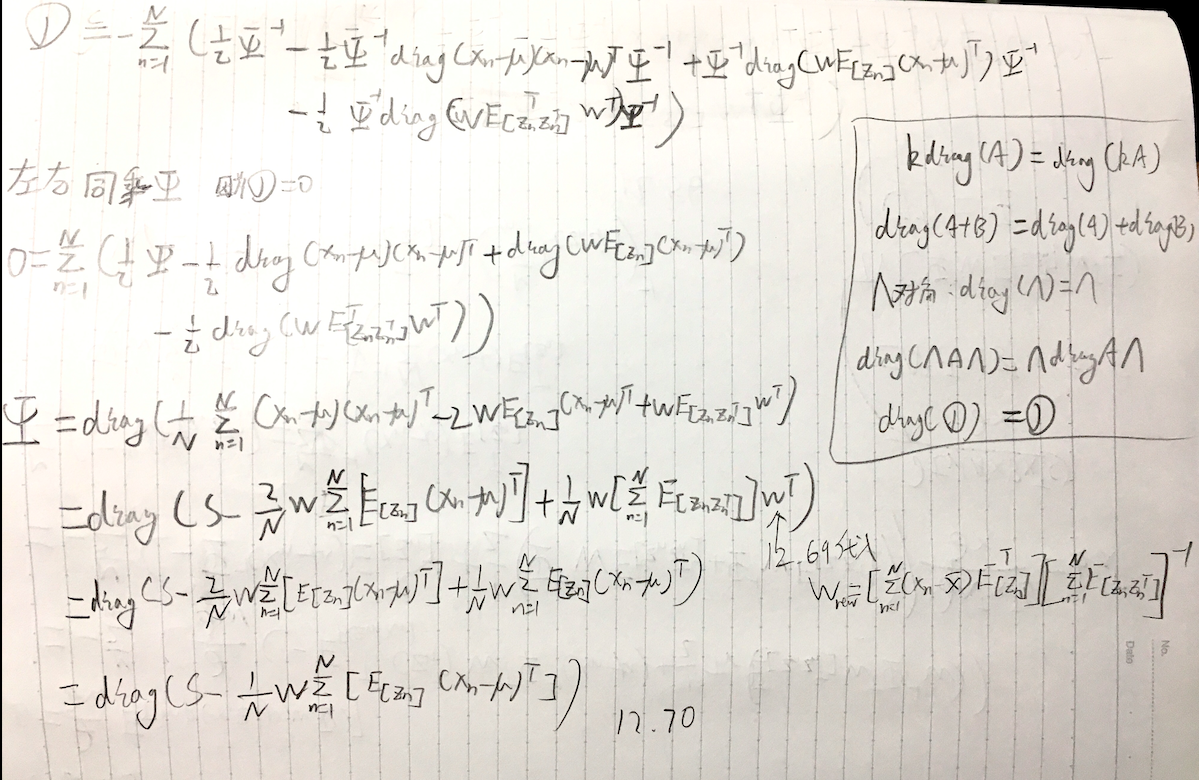 ① = -∑_{n=1}^{N} (½Ψ⁻¹ - ½Ψ⁻¹diag(xn-μ)(xn-μ)ᵀΨ⁻¹ + Ψ⁻¹diag(WE[zn](xn-μ)ᵀ)Ψ⁻¹
- ½ Ψ⁻¹diag(WE[znznᵀ]Wᵀ)Ψ⁻¹)
左右同乘Ψ 则①=0
0 = ∑_{n=1}^{N} (½Ψ - ½ diag(xn-μ)(xn-μ)ᵀ + diag(WE[zn](xn-μ)ᵀ)
- ½ diag(WE[znznᵀ]Wᵀ))
Ψ = diag(1/N ∑_{n=1}^{N} (xn-μ)(xn-μ)ᵀ - 2WE[zn](xn-μ)ᵀ + WE[znznᵀ]Wᵀ)
= diag(S - 2/N W ∑_{n=1}^{N} [E[zn](xn-μ)ᵀ] + 1/N W[∑_{n=1}^{N} E[znznᵀ]]Wᵀ)
↑
12.69代入
= diag(S - 2/N W∑_{n=1}^{N}[E[zn](xn-μ)ᵀ] + 1/N W∑_{n=1}^{N} E[zn](xn-μ)ᵀ)
Wnew = [∑_{n=1}^{N}(xn-x̄)E[zn]ᵀ][∑_{n=1}^{N}E[znznᵀ]]⁻¹
= diag(S - 1/N W∑_{n=1}^{N} [E[zn](xn-μ)ᵀ])
12.70
kdiag(A) = diag(kA)
diag(A+B) = diag(A) + diag(B)
Λ对角:diag(Λ)=Λ
diag(ΛAΛ) = ΛdiagAΛ
diag(①) = ①
No.
Date